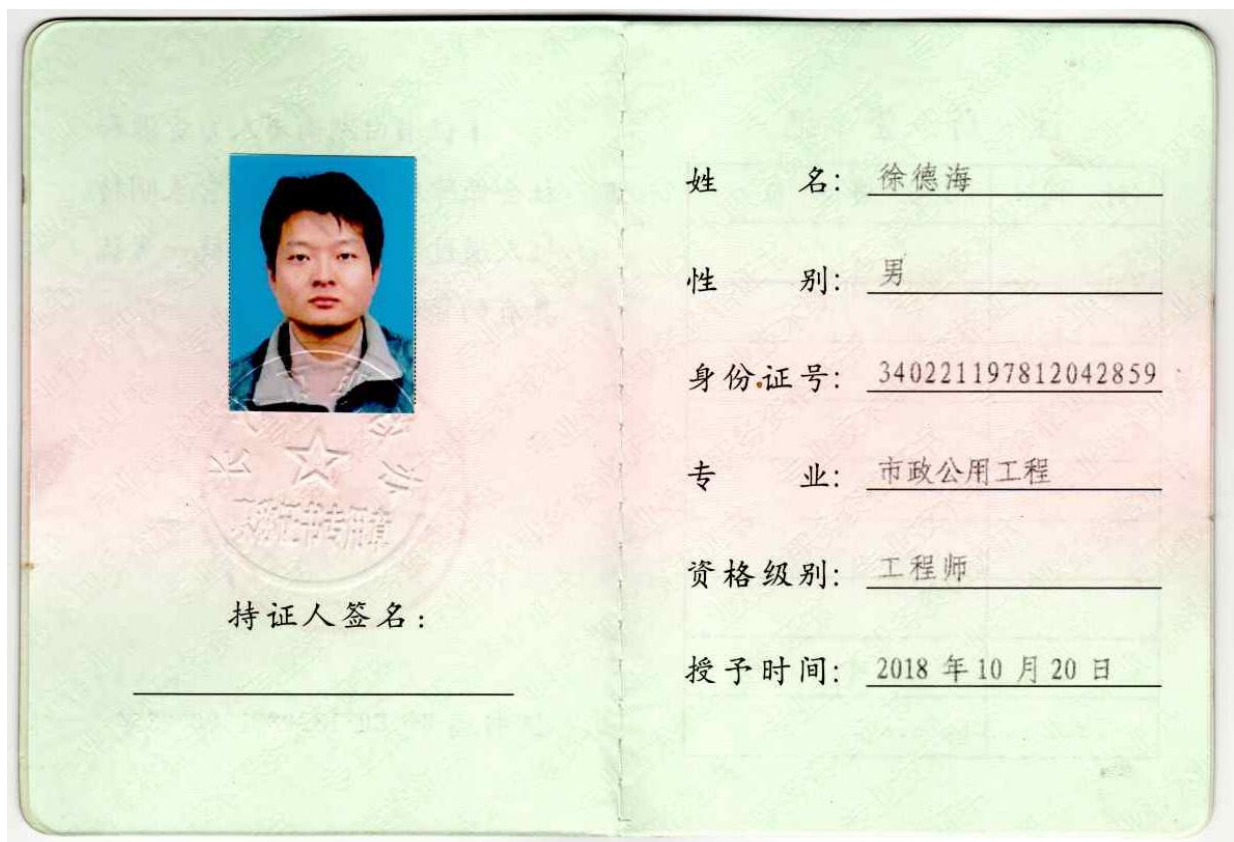 持证人签名:
姓 名: 徐德海
性 别: 男
身份证号: 340221197812042859
专 业: 市政公用工程
资格级别: 工程师
授予时间: 2018 年 10 月 20 日